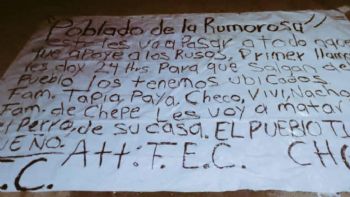 "Poblado de la Rumorosa"
Esto les va a Pasar a todo aquel
que apoye a los Rusos, Primer llam
les doy 24 Hrs Para que sal del
Pueblo los tenemos ubicados
Fam, Tapia, Paya, Checo, Vivi, Nacho
Fam, de Chepe Les voy a matar
el Perro, de su casa. EL PUEBLO TI
UE NO. Att: F.E.C. CH
F.C.